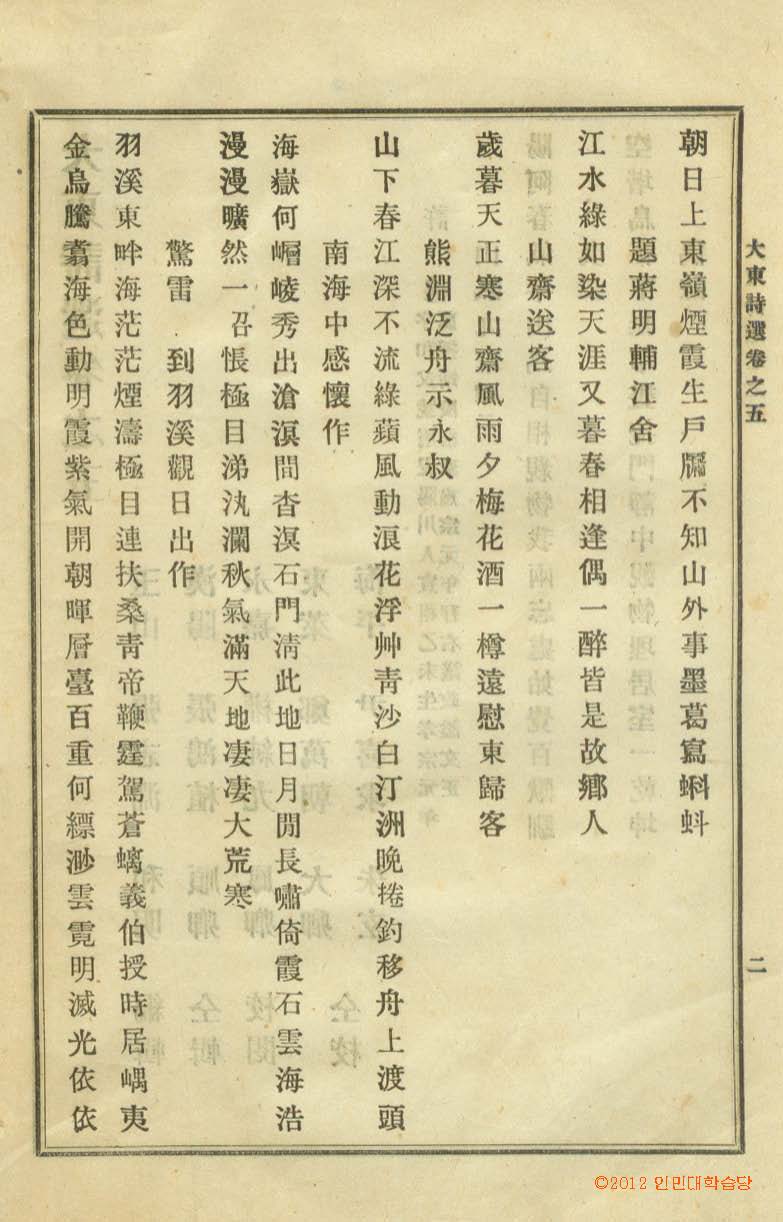 大東詩選卷之五
二
朝日上東嶺煙霞生戶牖不知山外事墨葛寫蝌蚪
題蔣明輔江舍
江水綠如染天涯又暮春相逢偶一醉皆是故鄉人
山齋送客
歲暮天正寒山齋風雨夕梅花酒一樽遠慰東歸客
熊淵泛舟示永叔
山下春江深不流綠蘋風動浪花浮艸靑沙白汀洲晚捲釣移舟上渡頭
南海中感懷作
海嶽何嶒崚秀出滄溟間杳溟石門淸此地日月閒長嘯倚霞石雲海浩
漫漫曠然一召悵極目涕汍瀾秋氣滿天地凄凄大荒寒
驚雷 到羽溪觀日出作
羽溪東畔海茫茫煙濤極目連扶桑靑帝鞭霆駕蒼螭義伯授時居嵎夷
金烏騰翥海色動明霞紫氣開朝暉層臺百重何縹渺雲霓明滅光依依
©2012 인민대학습당